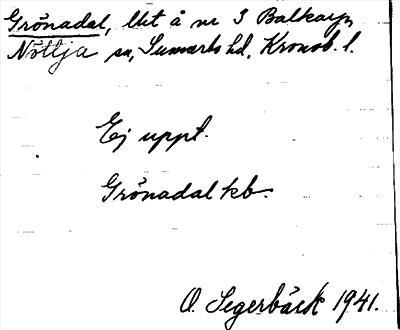 Grönadal, lht å nr 3 Balkarp,
Nöttja sn, Sunnerbo hd, Kronob. l.
Ej uppt.
Grönadal kb.
O. Segerbäck 1941.